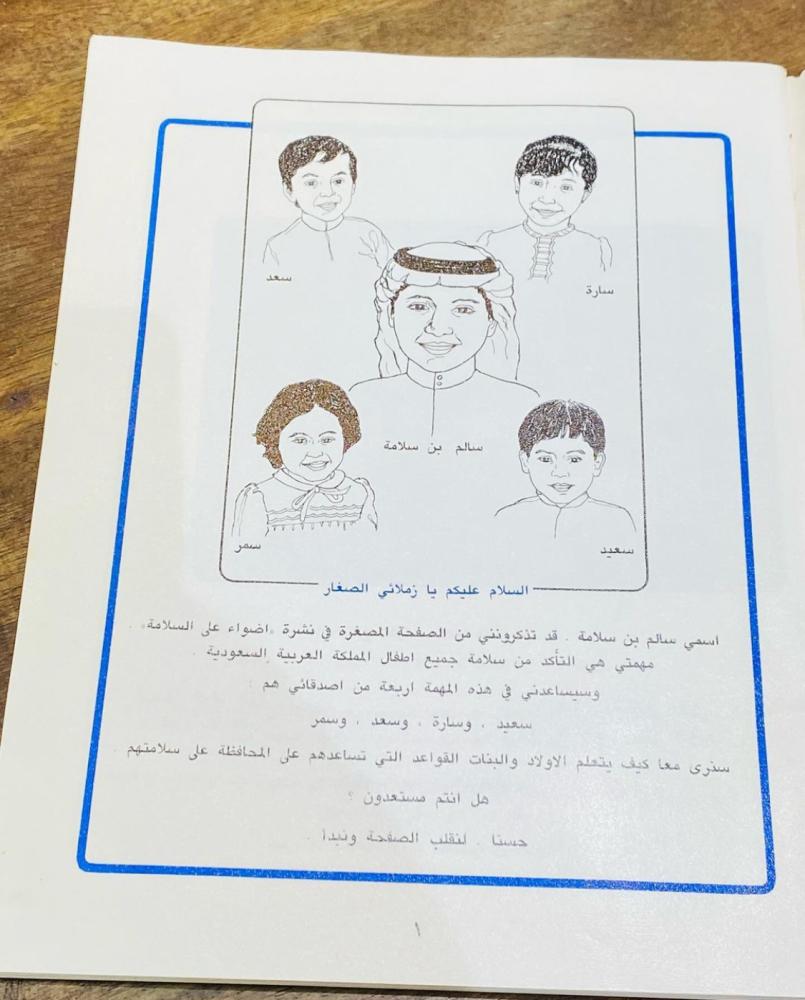 سعد
سارة
سالم بن سلامة
سمر
سعيد
السلام عليكم يا زملائي الصغار
اسمي سالم بن سلامة . قد تذكرونني من الصفحة المصغرة في نشرة «اضواء على السلامة» .
مهمتي هي التأكد من سلامة جميع اطفال المملكة العربية السعودية .
وسيساعدني في هذه المهمة اربعة من اصدقائي هم :
سعيد ، وسارة ، وسعد ، وسمر
سنرى معا كيف يتعلم الاولاد والبنات القواعد التي تساعدهم على المحافظة على سلامتهم .
هل انتم مستعدون ؟
حسنا . لنقلب الصفحة ونبدأ .
١